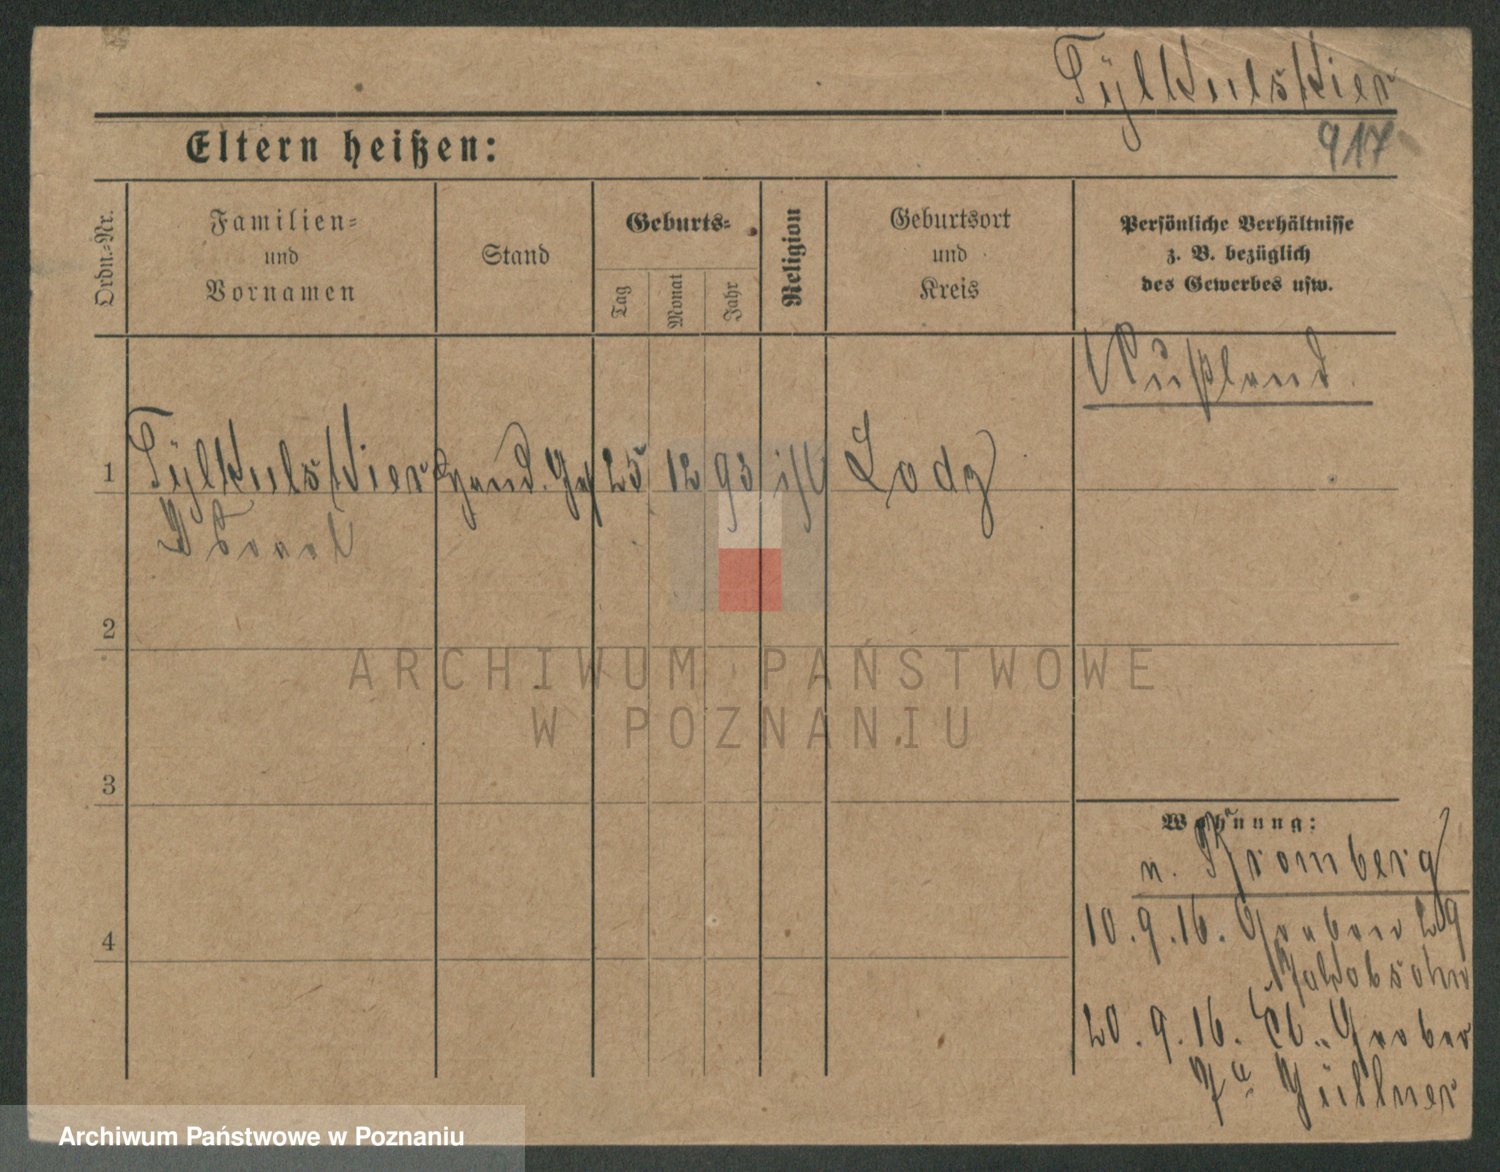 Tÿlkulskier
Eltern heißen:
917
Ordn.-Nr.
Familien-
und
Vornamen
Stand
Geburts-
Tag
Monat
Jahr
Religion
Geburtsort
und
Kreis
Persönliche Verhältnisse
z. B. bezüglich
des Gewerbes usw.
Rußland
1 Tÿlkulskier Hand. 25 12 93 isr Lodz
2
3
4
Wohnung:
n. Bromberg
10.9.16. Graben 29
Jakobsohn
20.9.16. Graben
7a
ARCHIWUM PAŃSTWOWE
W POZNANIU
Archiwum Państwowe w Poznaniu